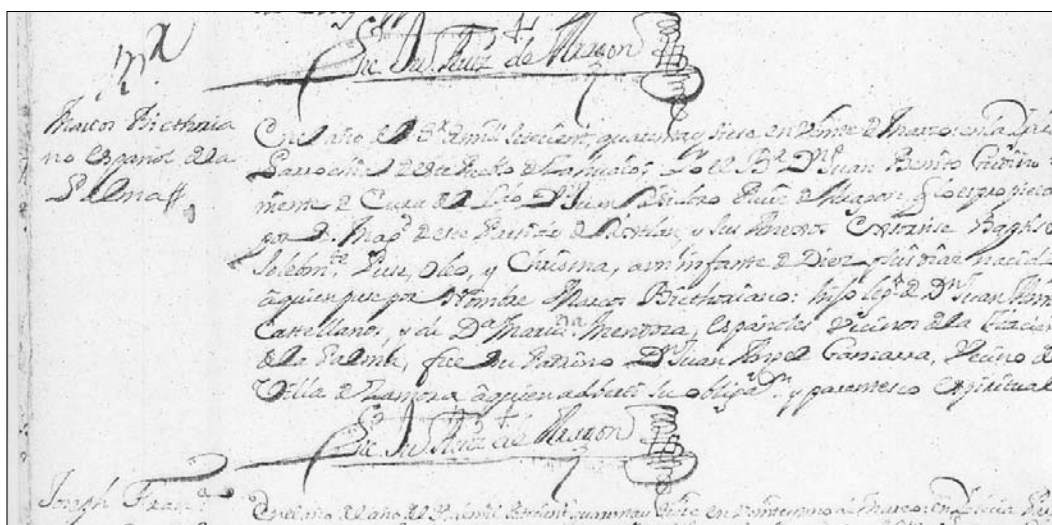 Lic. Ju. Ruiz de Aragon
Marcos Bicthoria
no español de la
Palma
En el año del S.r de mil setecient.s quarenta y siete en veinte de Marzo: en la Igle
Parrochial de este Pueblo de ; Yo el B.r D.n Juan Benito
mente de Cura del Lic.do D.n Juan Ruiz de Aragon, q lo es propieta
por S. Mag.d de este Partido de , y sus Anexos Baptise
solebm.te Puse, Oleo, y Chrisma, a un infante de Diez dias nacido
a quien puse por Nombre Marcos Bicthoriano: hijo leg.mo de D.n Juan
Castellanos, y de D.a Maria Mendoza, Españoles Vecinos de la
de la Palma, fue su Padrino D.n Juan Angel Gamarra, Vecino de
Villa de Zamora a quien adverti su obligaz.n y parentesco espiritual
Lic. Ju. Ruiz de Aragon
Joseph Fran.co
En el año del S.r de mil setecient.s quarenta y siete en veinte y uno de Marzo: en